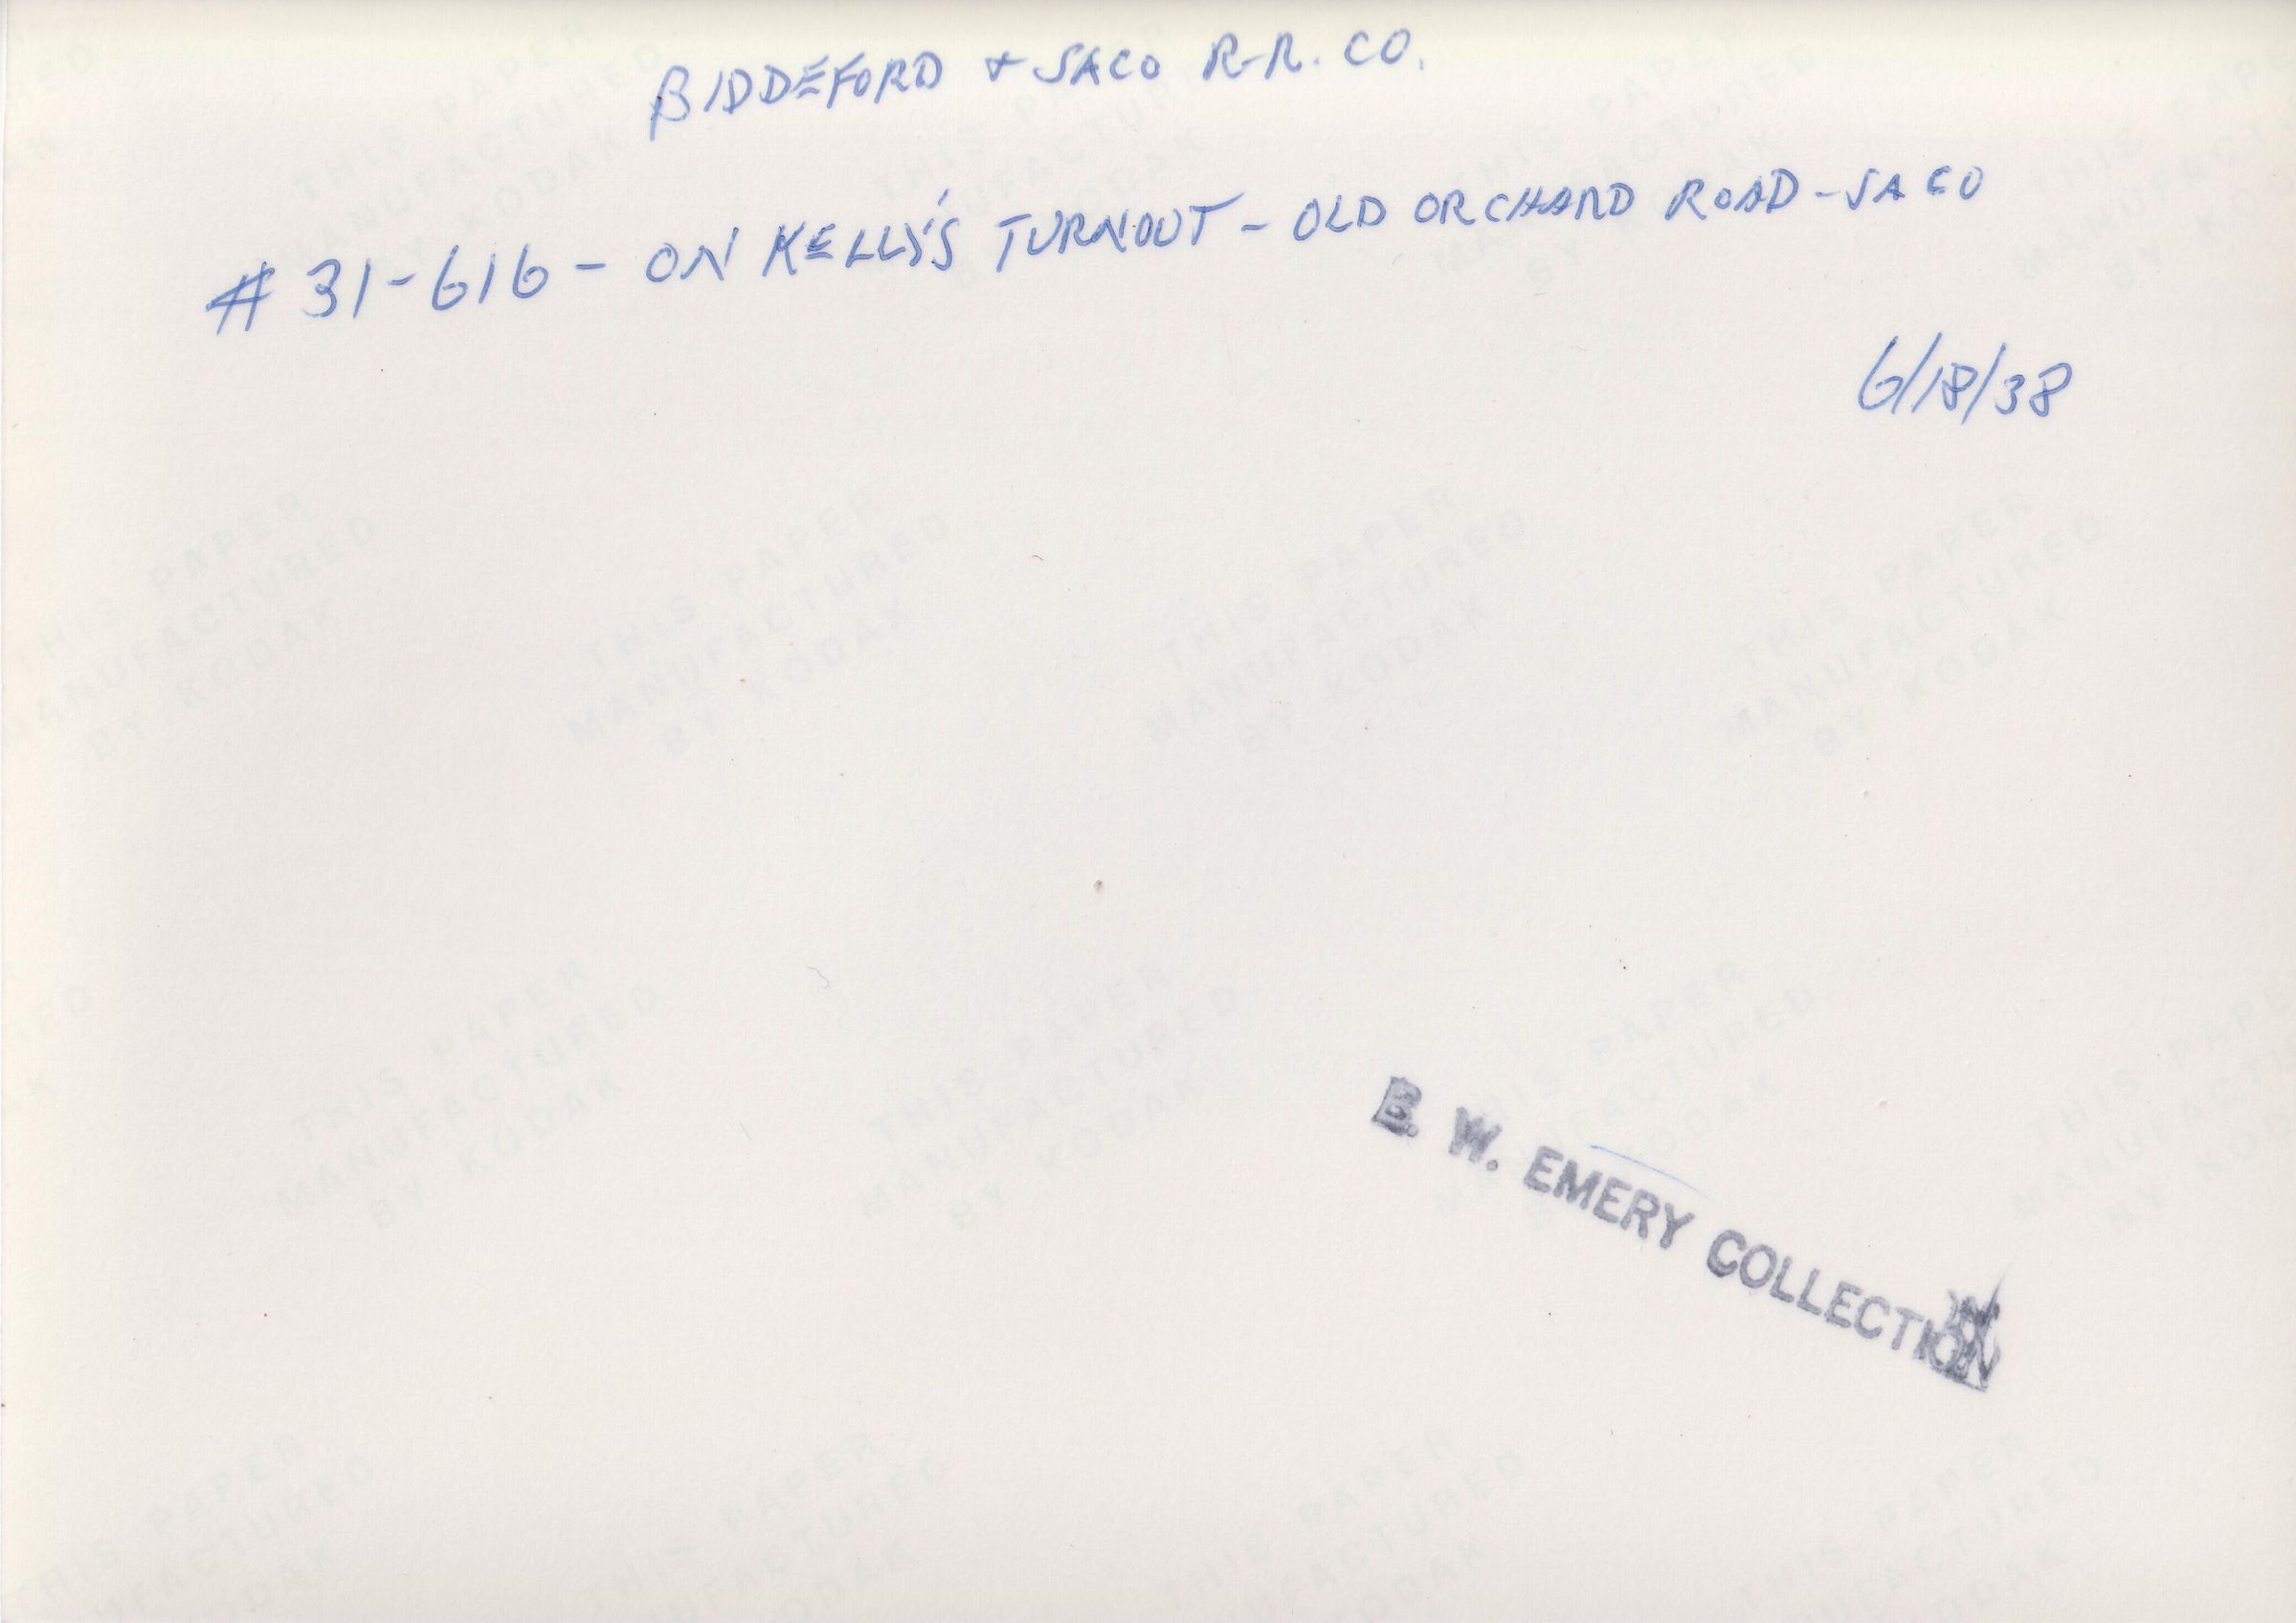 BIDDEFORD + SACO R.R. CO.
# 31-616 - ON KELLY'S TURNOUT - OLD ORCHARD ROAD - SACO
6/18/38
THIS PAPER
MANUFACTURED
BY KODAK
W. EMERY COLLECTION